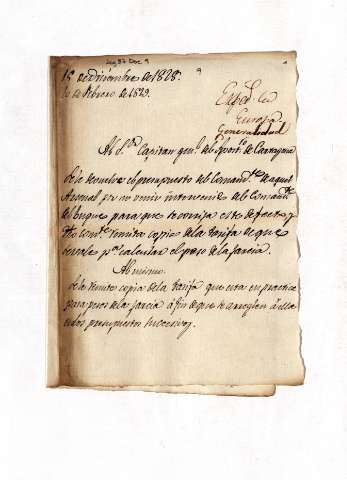 Leg 37 Doc. 9
9
15 de Diciembre de 1828.
de Febrero de 1829.
Exped.
Europa
Generalidad
Al S.or Capitan gen.l del Dpart.o de Cartagena
Se le devuelve el presupuesto del Comand.te de aquel
Arsenal por no venir intervenido del Comand.te
de buques para que se corrija este defecto y
dho Com.te remita copia de la tarifa de que
se vale p.a calcular el peso de la jarcia.
Al mismo.
Se le remite copia de la tarifa que esta en practica
para peso de la jarcia á fin de que se arreglen á ella
los presupuestos sucesivos.